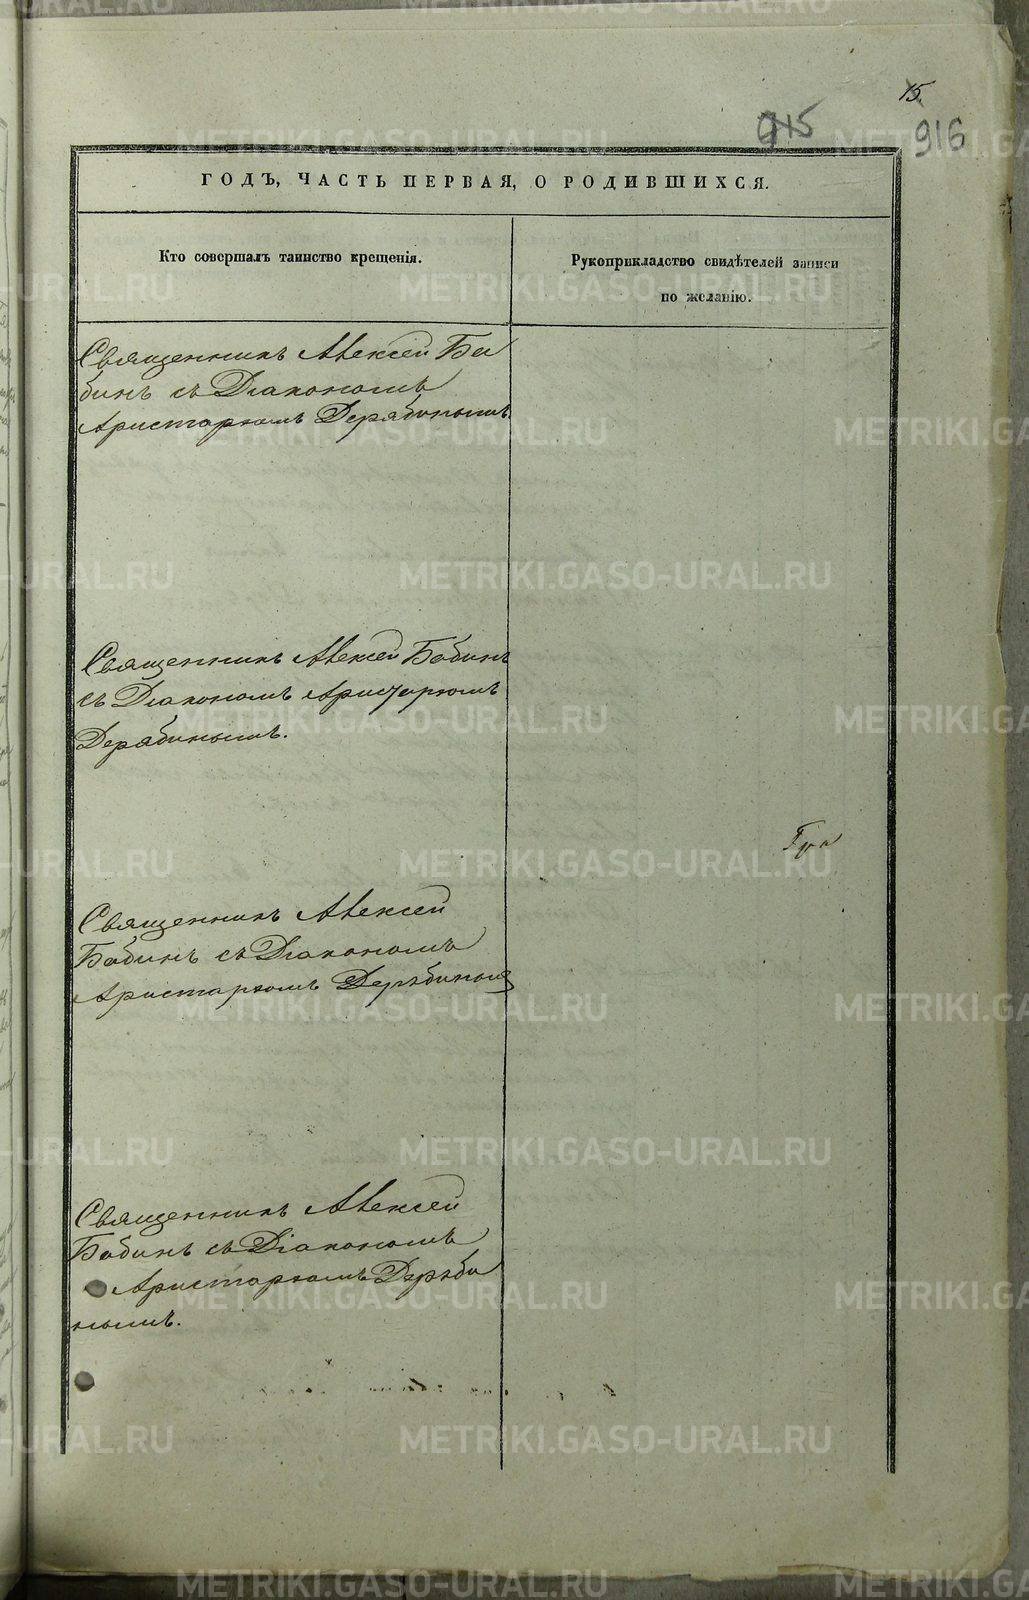 15.
915
916
ГОДЪ, ЧАСТЬ ПЕРВАЯ, О РОДИВШИХСЯ.
Кто совершалъ таинство крещенія.
Рукоприкладство свидѣтелей записи
по желанію.
Священникъ Алексѣй Ба
бинъ съ Діакономъ
Аристархомъ Дерябинымъ
Священникъ Алексѣй Бабинъ
съ Діакономъ Аристархомъ
Дерябинымъ.
Священникъ Алексѣй
Бабинъ съ Діакономъ
Аристархомъ Дерябинымъ
Священникъ Алексѣй
Бабинъ съ Діакономъ
Аристархомъ Деряби
нымъ.
METRIKI.GASO-URAL.RU